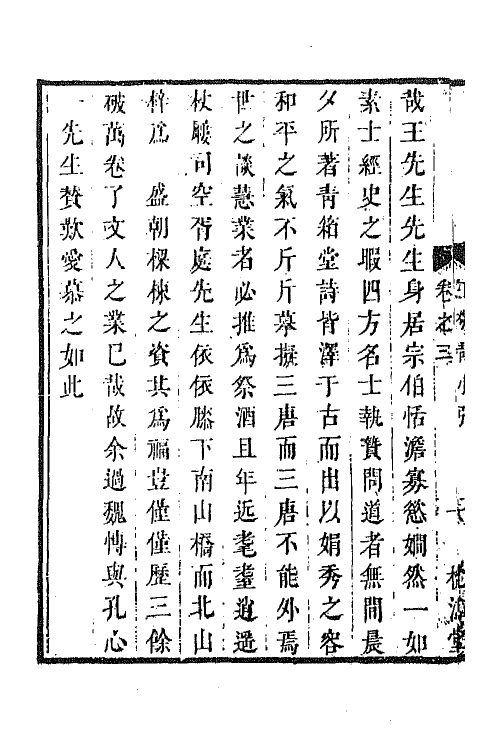 哉王先生先生身居宗伯恬澹寡慾嫺然一如
素士經史之暇四方名士執贄問道者無間晨
夕所著青箱堂詩皆澤于古而出以娟秀之容
和平之氣不斤斤摹擬三唐而三唐不能外焉
世之談慧業者必推爲祭酒且年近耄耋逍遥
杖屨司空胥庭先生依依膝下南山橋而北山
梓爲　盛朝樑棟之資其爲福豈僅僅歷三餘
破萬卷了文人之業已哉故余過魏愽與孔心
一先生賛歎愛慕之如此
卷之三